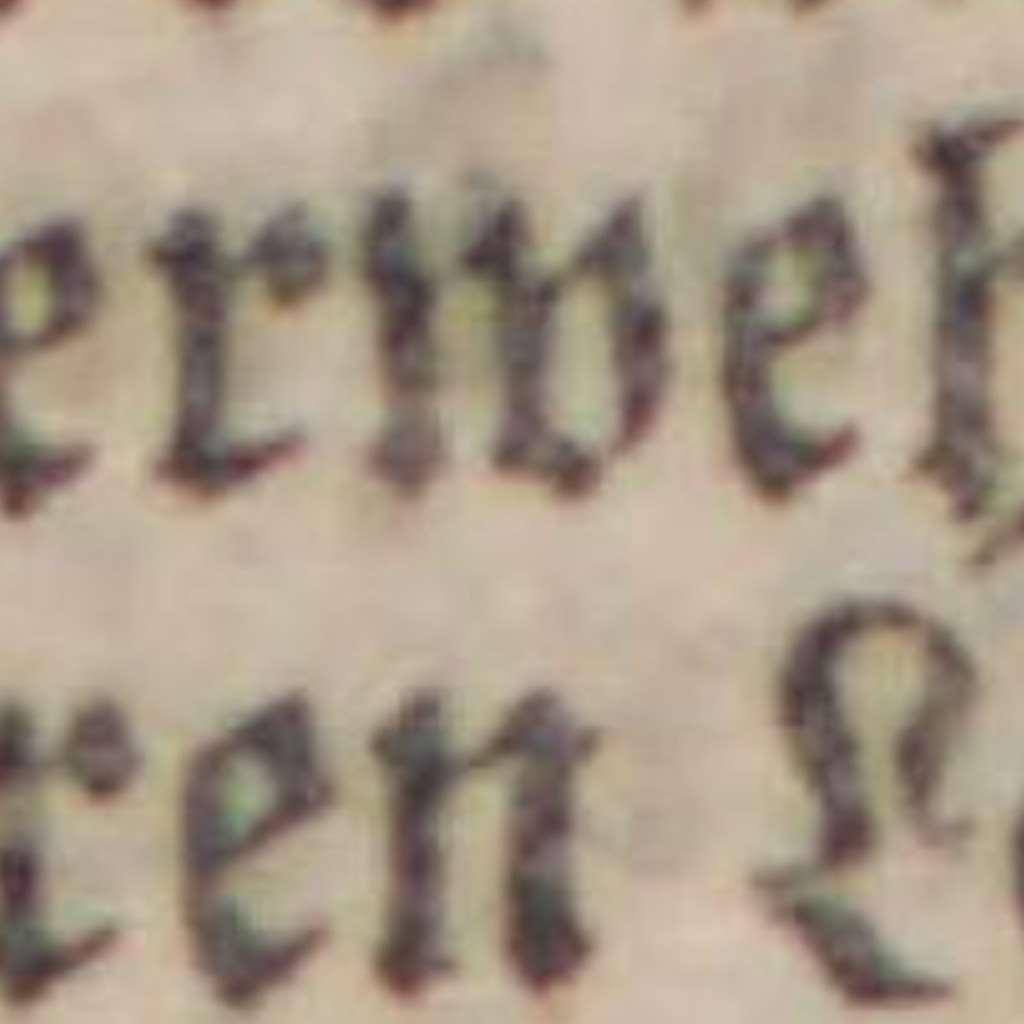 erweh
ren L